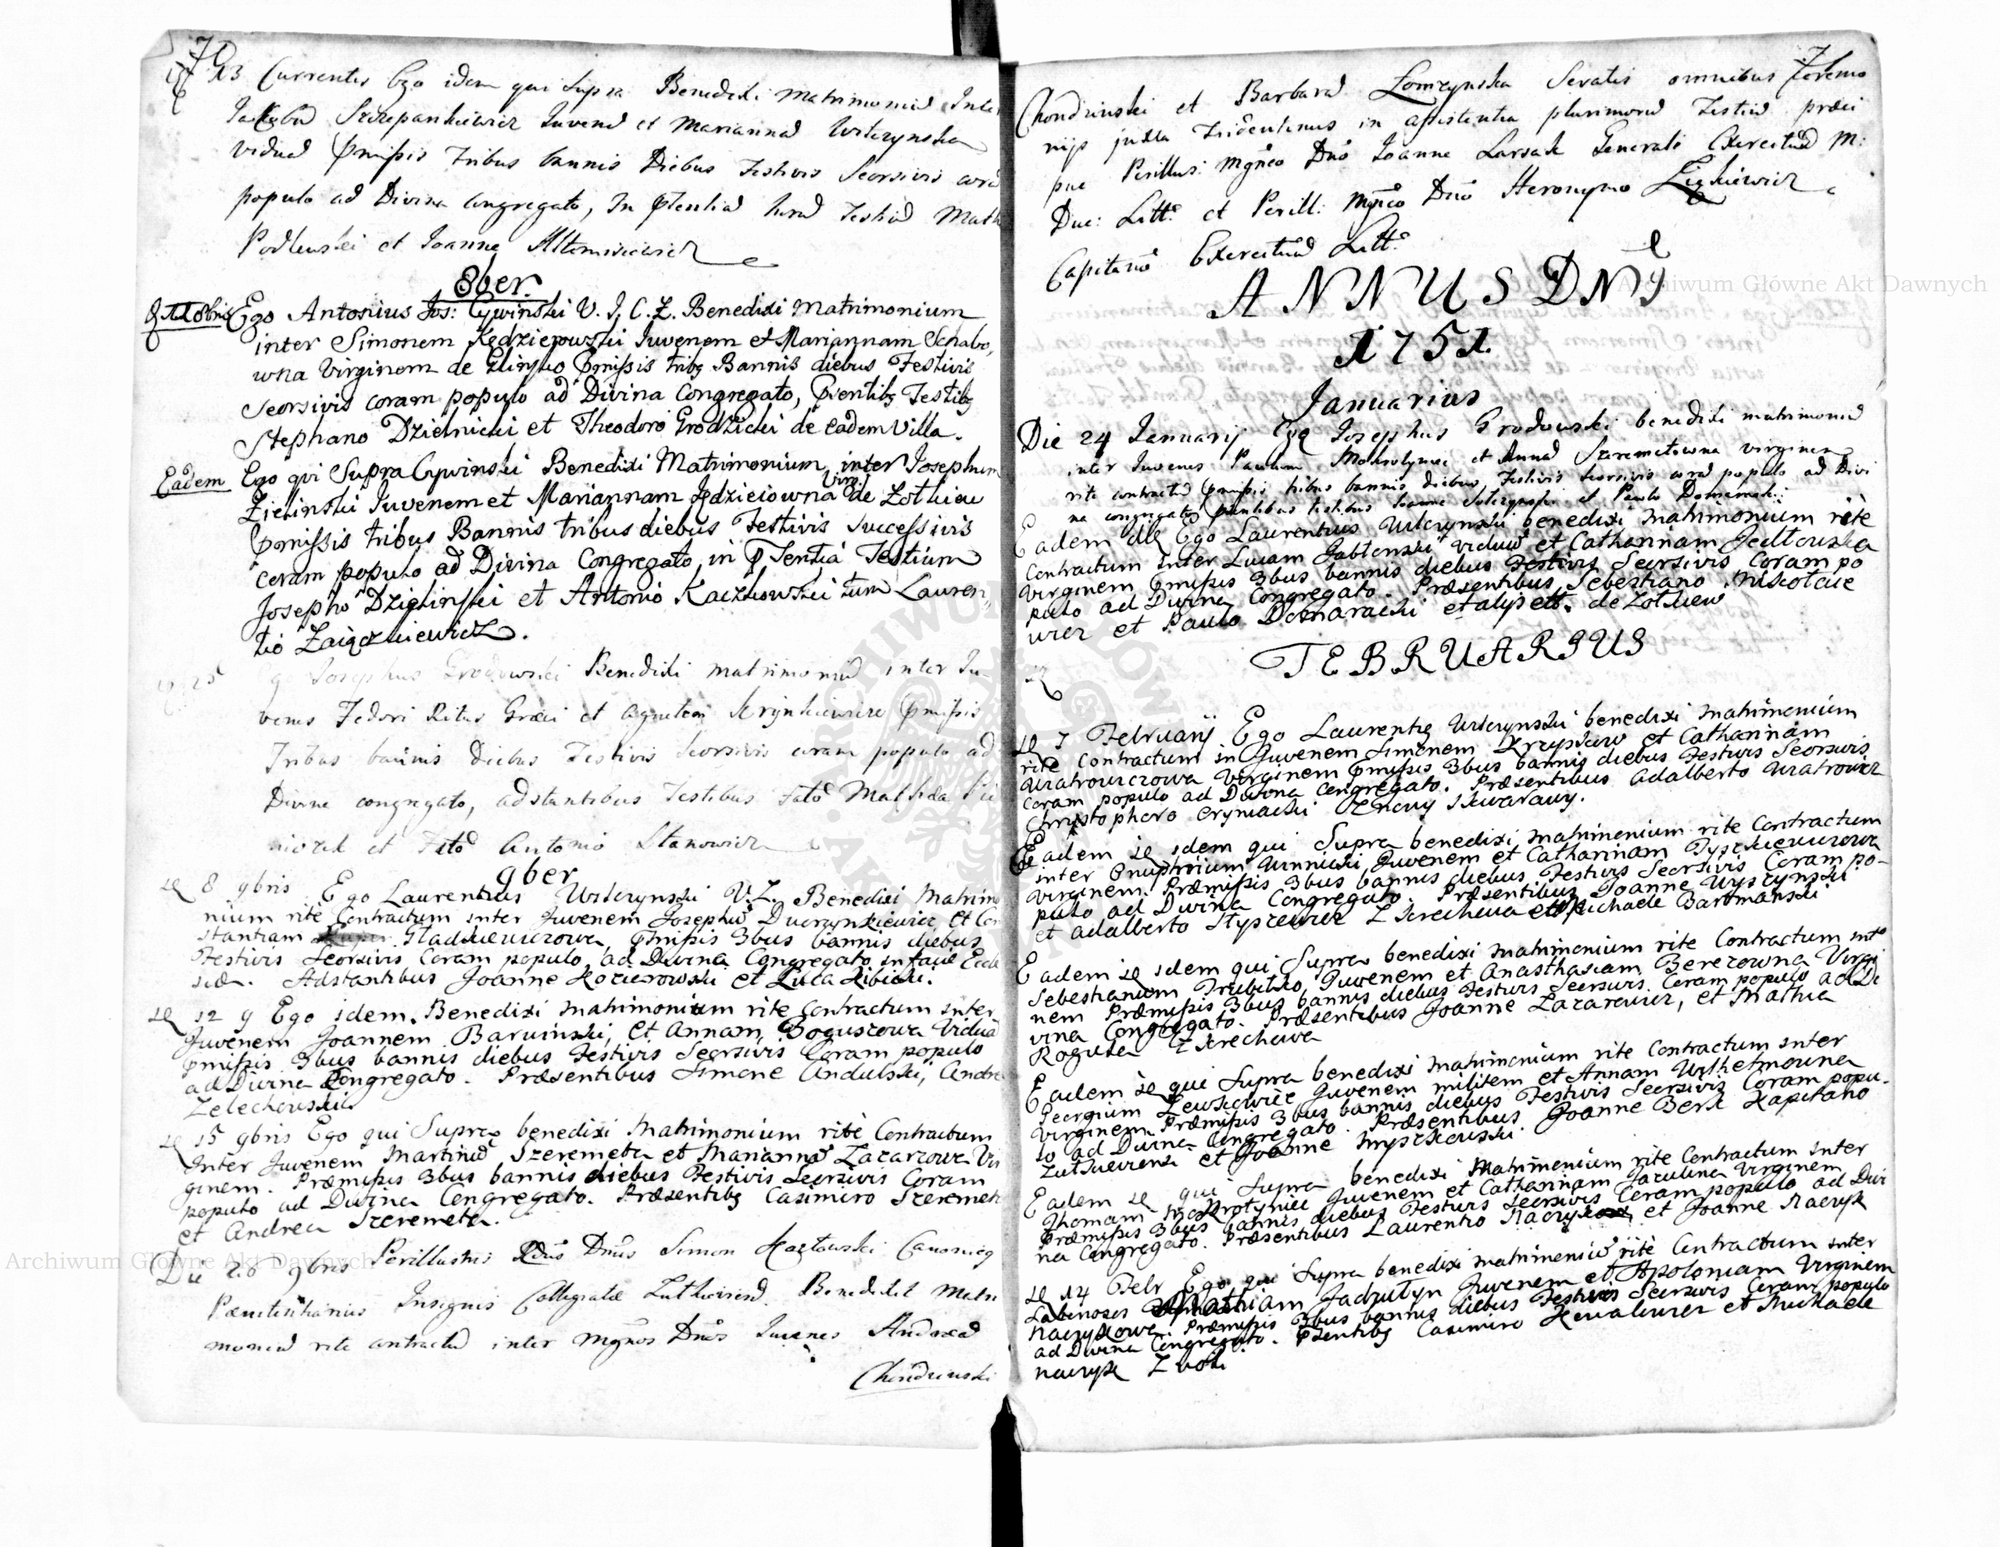 70
13 Currentis Ego idem qui supra Benedixi Matrimoniu Inter
Jacobu Szczepankiewicz Juvene et Marianna Wilczynska
vidua pmissis tribus bannis Diebus Festivis Seorsivis cora
populo ad Divina congregato, In Pntia horu Testiu Math
Podlewski et Joanne
8ber.
8bris Ego Antonius Jos: Cywinski V. I, C. Z. Benedixi Matrimonium
inter Simonem Kędzierowski Juvenem et Mariannam Schabo,
wna Virginem de Glinsko pmissis tribq Bannis diebus Festivis
Seorsivis coram populo ad Divina Congregato, Psentibq Testibq
Stephano Dzielnicki et Theodoro Grodzicki de eadem Villa.
Eadem Ego qui Supra Cywinski Benedixi Matrimonium inter Josephum
Zielinski Juvenem et Mariannam Jędzieiowna Virg: de Zolkiew
pmissis tribus Bannis tribus diebus Festivis successivis
coram populo ad Divina Congregato, in Psentia Testium
Josepho Dzielinski et Antonio Kaczkowski tum Lauren-
tio Zaiączkiewicz.
25 Josephus Grodowski Benedixi matrimoniu inter Ju-
venes Fedori Ritus Graeci et Agnetem pmissis
Tribus bannis Diebus Festivis Seorsivis coram populo ad
Divina congregato, adstantibus Testibus
et Antonio Stanowicz
9ber
8 9bris Ego Laurentius Wilczynski V. Z. Benedixi Matrimo
nium rite Contractum inter Juvenem Josephu Duczynkiewicz et Con
stantiam Hadkiewiczowa, pmissis 3bus bannis diebus
Festivis Seorsivis Coram populo ad Divina Congregato in facie Eccle
siae. Adstantibus Joanne Kozierowski et Luca Kibicki.
12 9 Ego idem. Benedixi matrimonium rite Contractum inter
Juvenem Joannem Barwinski, et Annam, Boguszowa Vidua
pmissis 3bus bannis diebus Festivis Seorsivis Coram populo
ad Divina Congregato. Praesentibus Simone Andulski, Andre
Zelechowski.
15 9bris Ego qui Supra benedixi Matrimonium rite Contractum
Inter Juvenem Martinu Szeremeta et Marianna Lazarzowa Vir
ginem. Praemissis 3bus bannis diebus Festivis Seorsivis Coram
populo ad Divina Congregato. Praesentibq Casimiro Szeremeta
et Andrea Szeremeta.
Die 28 9bris Perillustris Rdus Dnus Simon Kozlowski Canonicq
Paenitentiarius Insignis Collegiatae Zolkiviens. Benedixit Matri
moniu rite contractu inter Mgnos Dnos Juvenes Andrea
Chondzinski
Chondzinski et Barbara Lomzynska Servatis omnibus Ceremo
nijs juxta Tridentinus in assistentia plurimoru Testiu praeci
pue Perillus: Mgnco Dno Joanne Larsak Generali Exercituu M:
Duc: Litt: et Perill: Mgnco Dno Heronymo Ligkiewicz
Capitaneo Exercituu Litt:
ANNUS DNI
1751
Januarius
Die 24 Januarij Ego Josephus Grodowski benedixi matrimoniu
inter Juvenes Paulum Mokrotyniec et Anna Szeremetowna virginem
rite contractu pmissis tribus bannis, diebus Festivis seorsivis cora populo ad Divi
na congregato psentibus testibus Joanne et Paulo Domaracki
Eadem die Ego Laurentius Wilczynski benedixi Matrimonium rite
Contractum Inter Lucam Jablonski viduu et Catharinam Jedlowska
Virginem pmissis 3bus bannis diebus Festivis Seorsivis Coram po
pulo ad Divina Congregato. Praesentibus Sebestiano Mikolaie
wicz et Paulo Domaracki et alijs de Zolkiew
FEBRUARIUS
7 Februarij Ego Laurentiq Wilczynski benedixi matrimonium
rite Contractum in Juvenem Simonem Krzysków et Catharinam
Watrowiczowa Virginem pmissis 3bus bannis diebus Festivis Seorsivis
Coram populo ad Divina Congregato. Praesentibus Adalberto Watrowicz
Christophoro Crymacki
Eadem die idem qui Supra benedixi Matrimonium rite Contractum
inter Onuphrium Winnicki, Juvenem et Catharinam Tyszkiewiczowa
Virginem. Praemissis 3bus bannis diebus Festivis Seorsivis Coram po-
pulo ad Divina Congregato. Praesentibus Joanne Wyszynski
et Adalberto Hyszewicz Z Skrechowa et Michaele Bartmanski
Eadem die idem qui Supra benedixi matrimonium rite Contractum inte
Sebestianum Trubitko, Juvenem et Anasthasiam Berezowna Virgi
nem Praemissis 3bus bannis diebus Festivis Seorsivis. Coram populo ad Di
vina Congregato. Praesentibus Joanne Lazarewicz, et Mathia
Rogulka Z Skrechowa
Eadem die qui Supra benedixi matrimonium rite Contractum inter
Georgium Lewkowicz Juvenem militem et Annam Wilhelmowna
Virginem Praemissis 3bus bannis diebus Festivis Seorsivis Coram popu-
lo ad Divina Congregato. Praesentibus Joanne Berk Kapitano
Zolkieviensi et Joanne Myszkowski.
Eadem die qui Supra benedixi Matrimonium rite Contractum inter
Thomam Mokrotyniec Juvenem et Catharinam Jaculina Virginem
Praemissis 3bus bannis diebus Festivis Seorsivis Coram populo ad Divi
na Congregato. Praesentibus Laurentio Kaczyk et Joanne Kaczyk
14 Febr Ego qui Supra benedixi matrimoniu rite Contractum inter
Laboriosos Mathiam Jadzutyn Juvenem et Apoloniam Virginem
Kaczykowa. Praemissis 3bus bannis diebus Festivis Seorsivis Coram populo
ad Divina Congregato. Psentibq Casimiro Kowalewicz et Michaele
Kaczyk Z woli
Archiwum Główne Akt Dawnych
Archiwum Główne Akt Dawnych